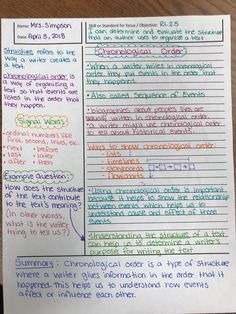 Name: Mrs. Simpson
Date: April 3, 2018
Skill or Standard for focus / Objective: RI.2.5
I can determine and evaluate the structure
that an author uses to organize a text.
Structure refers to the
way a writer creates a
a text.
Chronological order is
a way of organizing
a text so that events are
listed in the order that
they happen.
Signal Words
• ordinal numbers like
first, second, third, etc.
• next
• before
• last
• later
• after
• then
Example Question:
How does the structure
of the text contribute
to the text's meaning?
(In other words,
what is the writer
trying to tell us?)
Chronological Order
• When a writer writes in chronological
order, they put events in the order that
they happened.
• Also called Sequence of Events
• biographies about people's lives are
usually written in chronological order.
• a writer might use chronological order
to tell about historical events.
Ways to show chronological order
- lists
- timelines
- storyboards
• Using chronological order is important
because it helps to show the relationship
between events which helps us to
understand cause and effect of those
events.
• Understanding the structure of a text
can help us to determine a writer's
purpose for writing the text.
Summary: Chronological order is a type of structure
where a writer gives information in the order that it
happened. This helps us to understand how events
affect or influence each other.